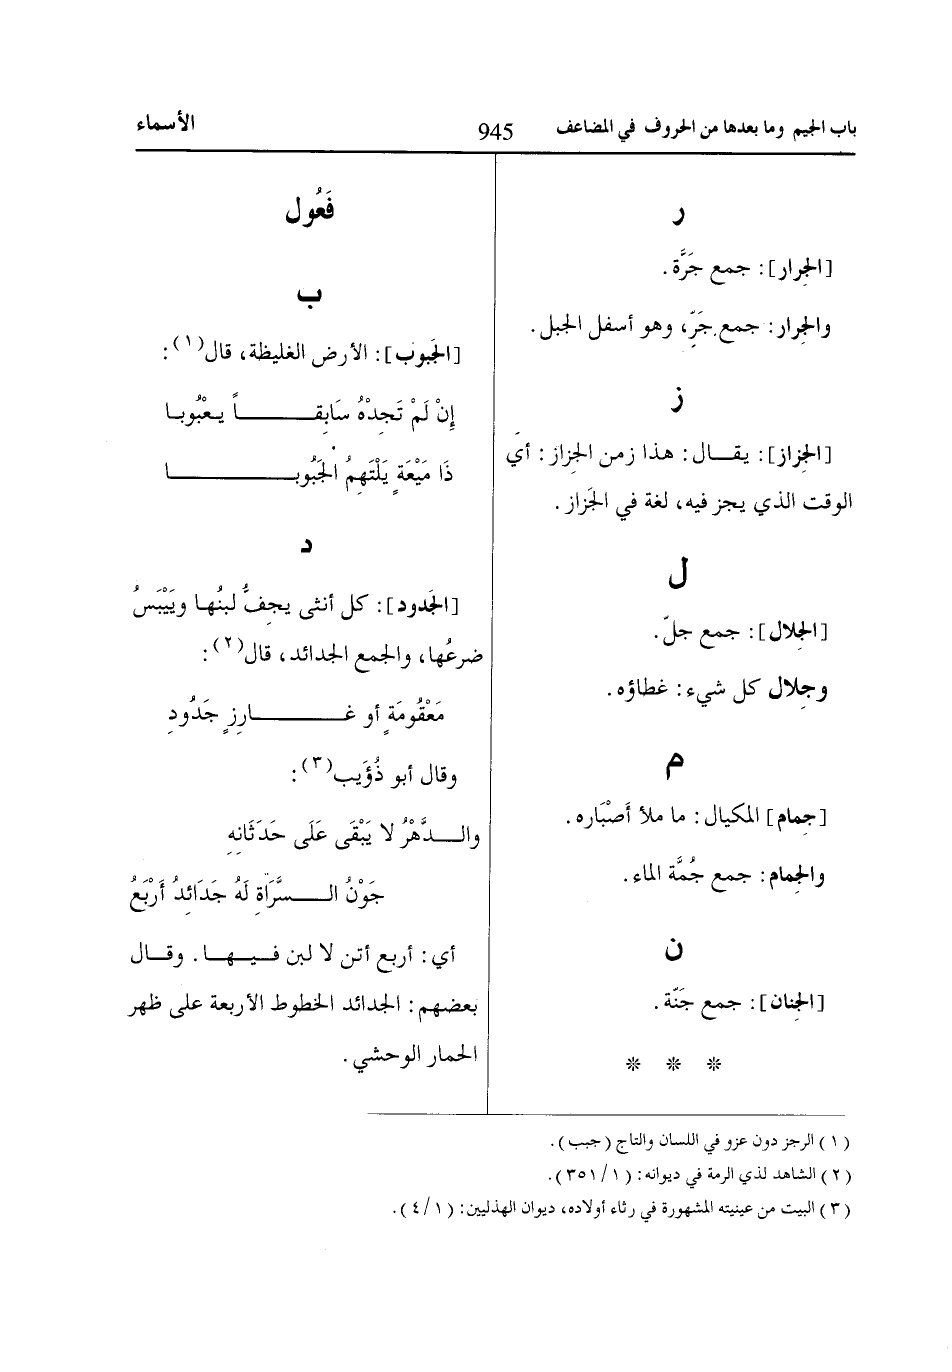 باب الجيم وما بعدها من الحروف في المضاعف 945 الأسماء
ر
[الجِرار]: جمع جَرَّة.
والجِرار: جمع جَرّ، وهو أسفل الجبل.
ز
[الجِزاز]: يقـــال: هذا زمن الجِزاز: أي
الوقت الذي يجز فيه، لغة في الجَزاز.
ل
[الجِلال]: جمع جلّ.
وجِلال كل شيء: غطاؤه.
م
[جِمام] المكيال: ما ملأ أَصْبَاره.
والجِمام: جمع جُمَّة الماء.
ن
[الجِنان]: جمع جَنّة.
* * *
فَعُول
ب
[الجَبوب]: الأرض الغليظة، قال(١):
إِنْ لَمْ تَجِدْهُ سَابِقـــــــاً يـعْبُوبـا
ذَا مَيْعَةٍ يَلْتَهِمُ الجَبُوبـــــــا
د
[الجَدود]: كل أنثى يجفُّ لبنُها ويَيْبَسُ
ضرعُها، والجمع الجدائد، قال(٢):
مَعْقُومَةٍ أو غـــــــارِزٍ جَدُودِ
وقال أبو ذُؤَيب(٣):
والـــدَّهْرُ لا يَبْقَى عَلَى حَدَثَانِهِ
جَوْنُ الـــسَّرَاةِ لَهُ جَدَائِدُ أَرْبَعُ
أي: أربع أتن لا لبن فـيـهـــا. وقـــال
بعضهم: الجدائد الخطوط الأربعة على ظهر
الحمار الوحشي.
(١) الرجز دون عزو في اللسان والتاج (جبب).
(٢) الشاهد لذي الرمة في ديوانه: (١/ ٣٥١).
(٣) البيت من عينيته المشهورة في رثاء أولاده، ديوان الهذليين: (١/ ٤).